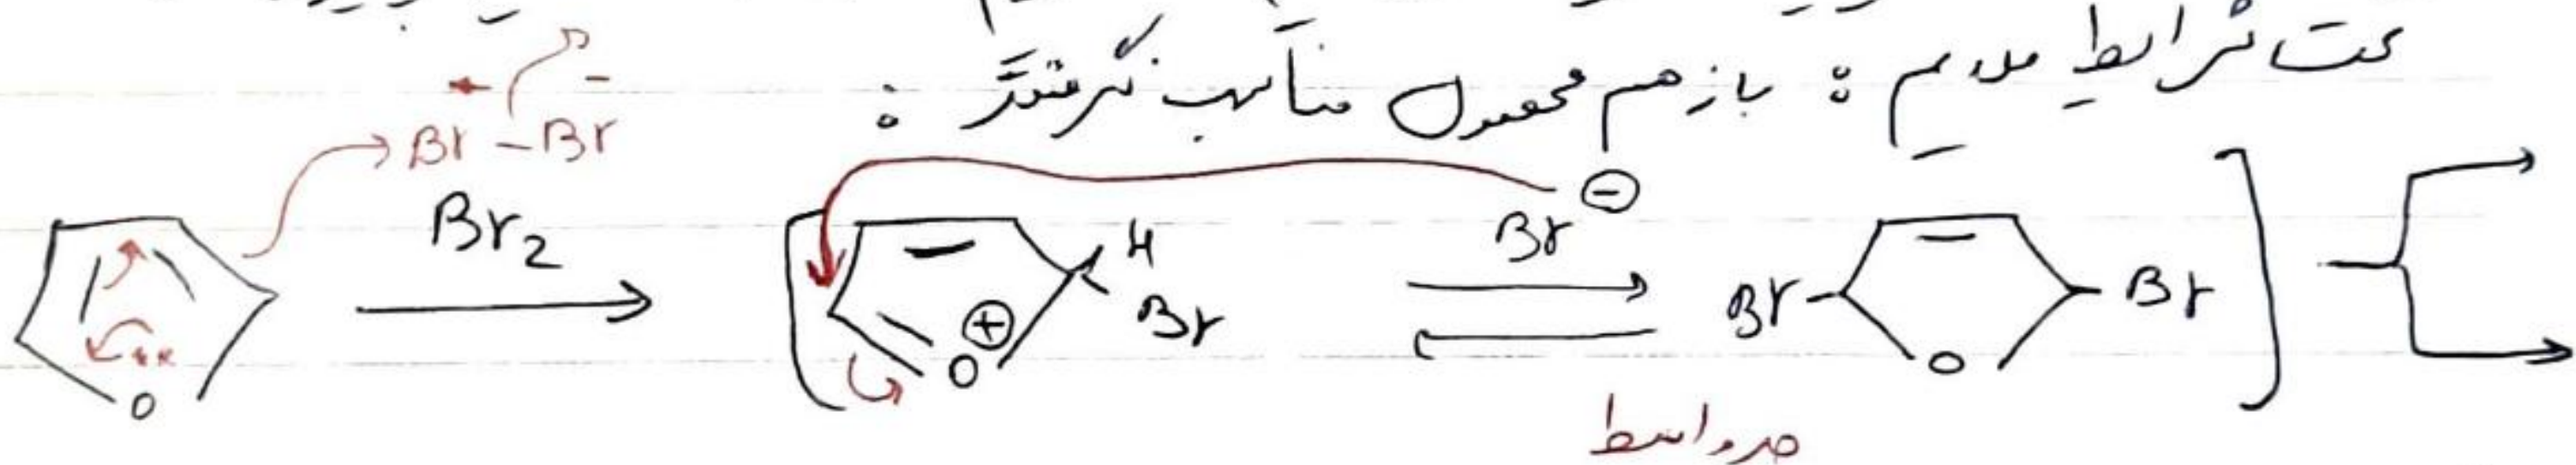 تحت شرایط ملایم : باز هم محصول مناسب نگرفتند :
Br - Br
Br2
Br ⊖
H
Br
⊕
O
O
Br
Br
O
حد واسط